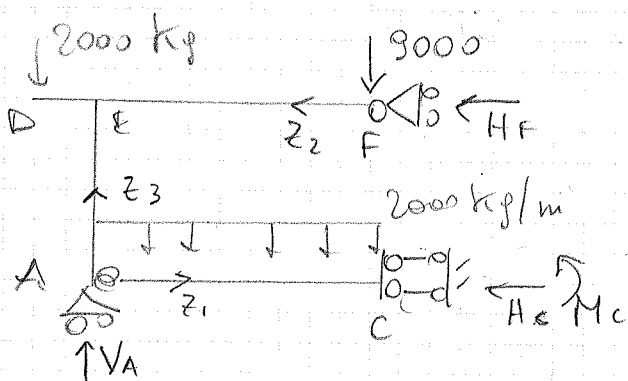 2000 Kg
9000
D
E
Z2
F
HF
Z3
2000 Kg/m
A
Z1
C
Hc
Mc
VA